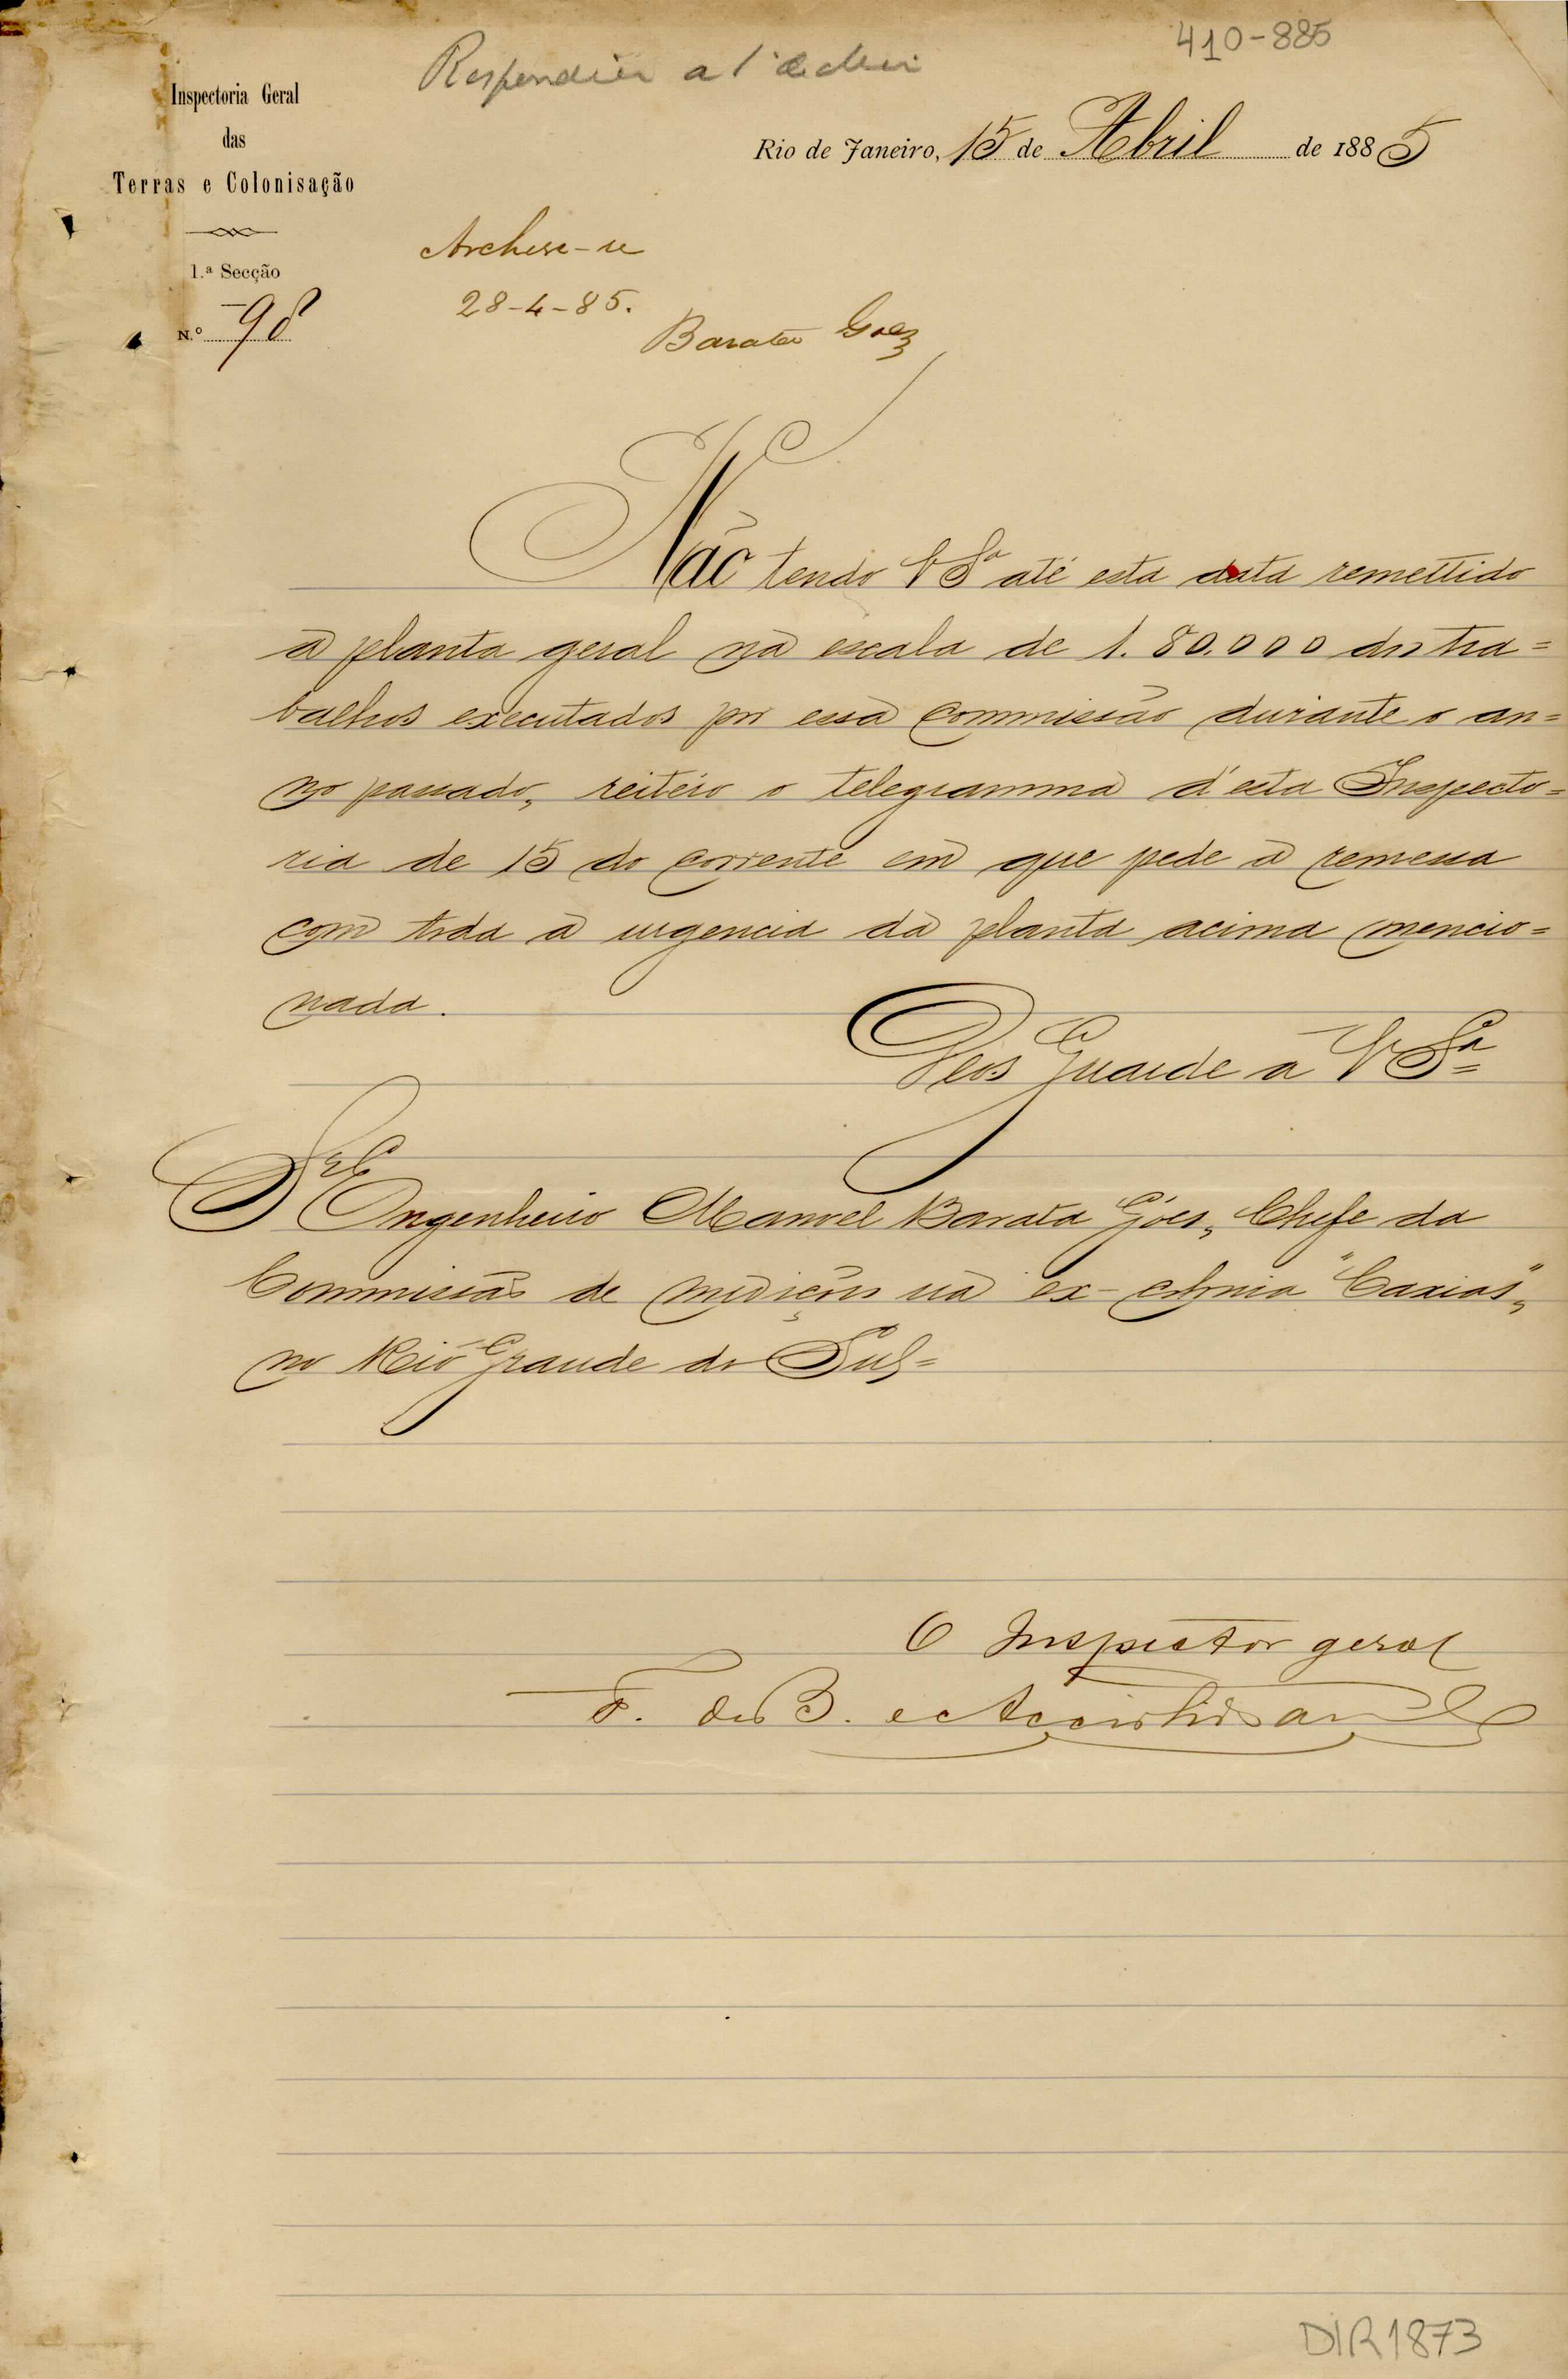 410-885
Inspectoria Geral
das
Terras e Colonisação
1.ª Secção
N.º 98
Rio de Janeiro, 15 de Abril de 1885
Archive-se
28-4-85.
Barata Goes
Não tendo V Sª até esta data remettido
a planta geral na escala de 1.80.000 dos tra=
balhos executados por essa Commissão durante o an=
no passado, reitéro o telegramma d'esta Inspecto=
ria de 15 do corrente em que pede a remessa
com toda a urgencia da planta acima mencio=
nada.
Deos Guarde a V Sª
Sr. Engenheiro Manoel Barata Góes, Chefe da
Commissão de medições na ex-colonia "Caxias",
no Rio Grande do Sul=
O Inspector geral
F. de B. e Accioli de
DIR1873